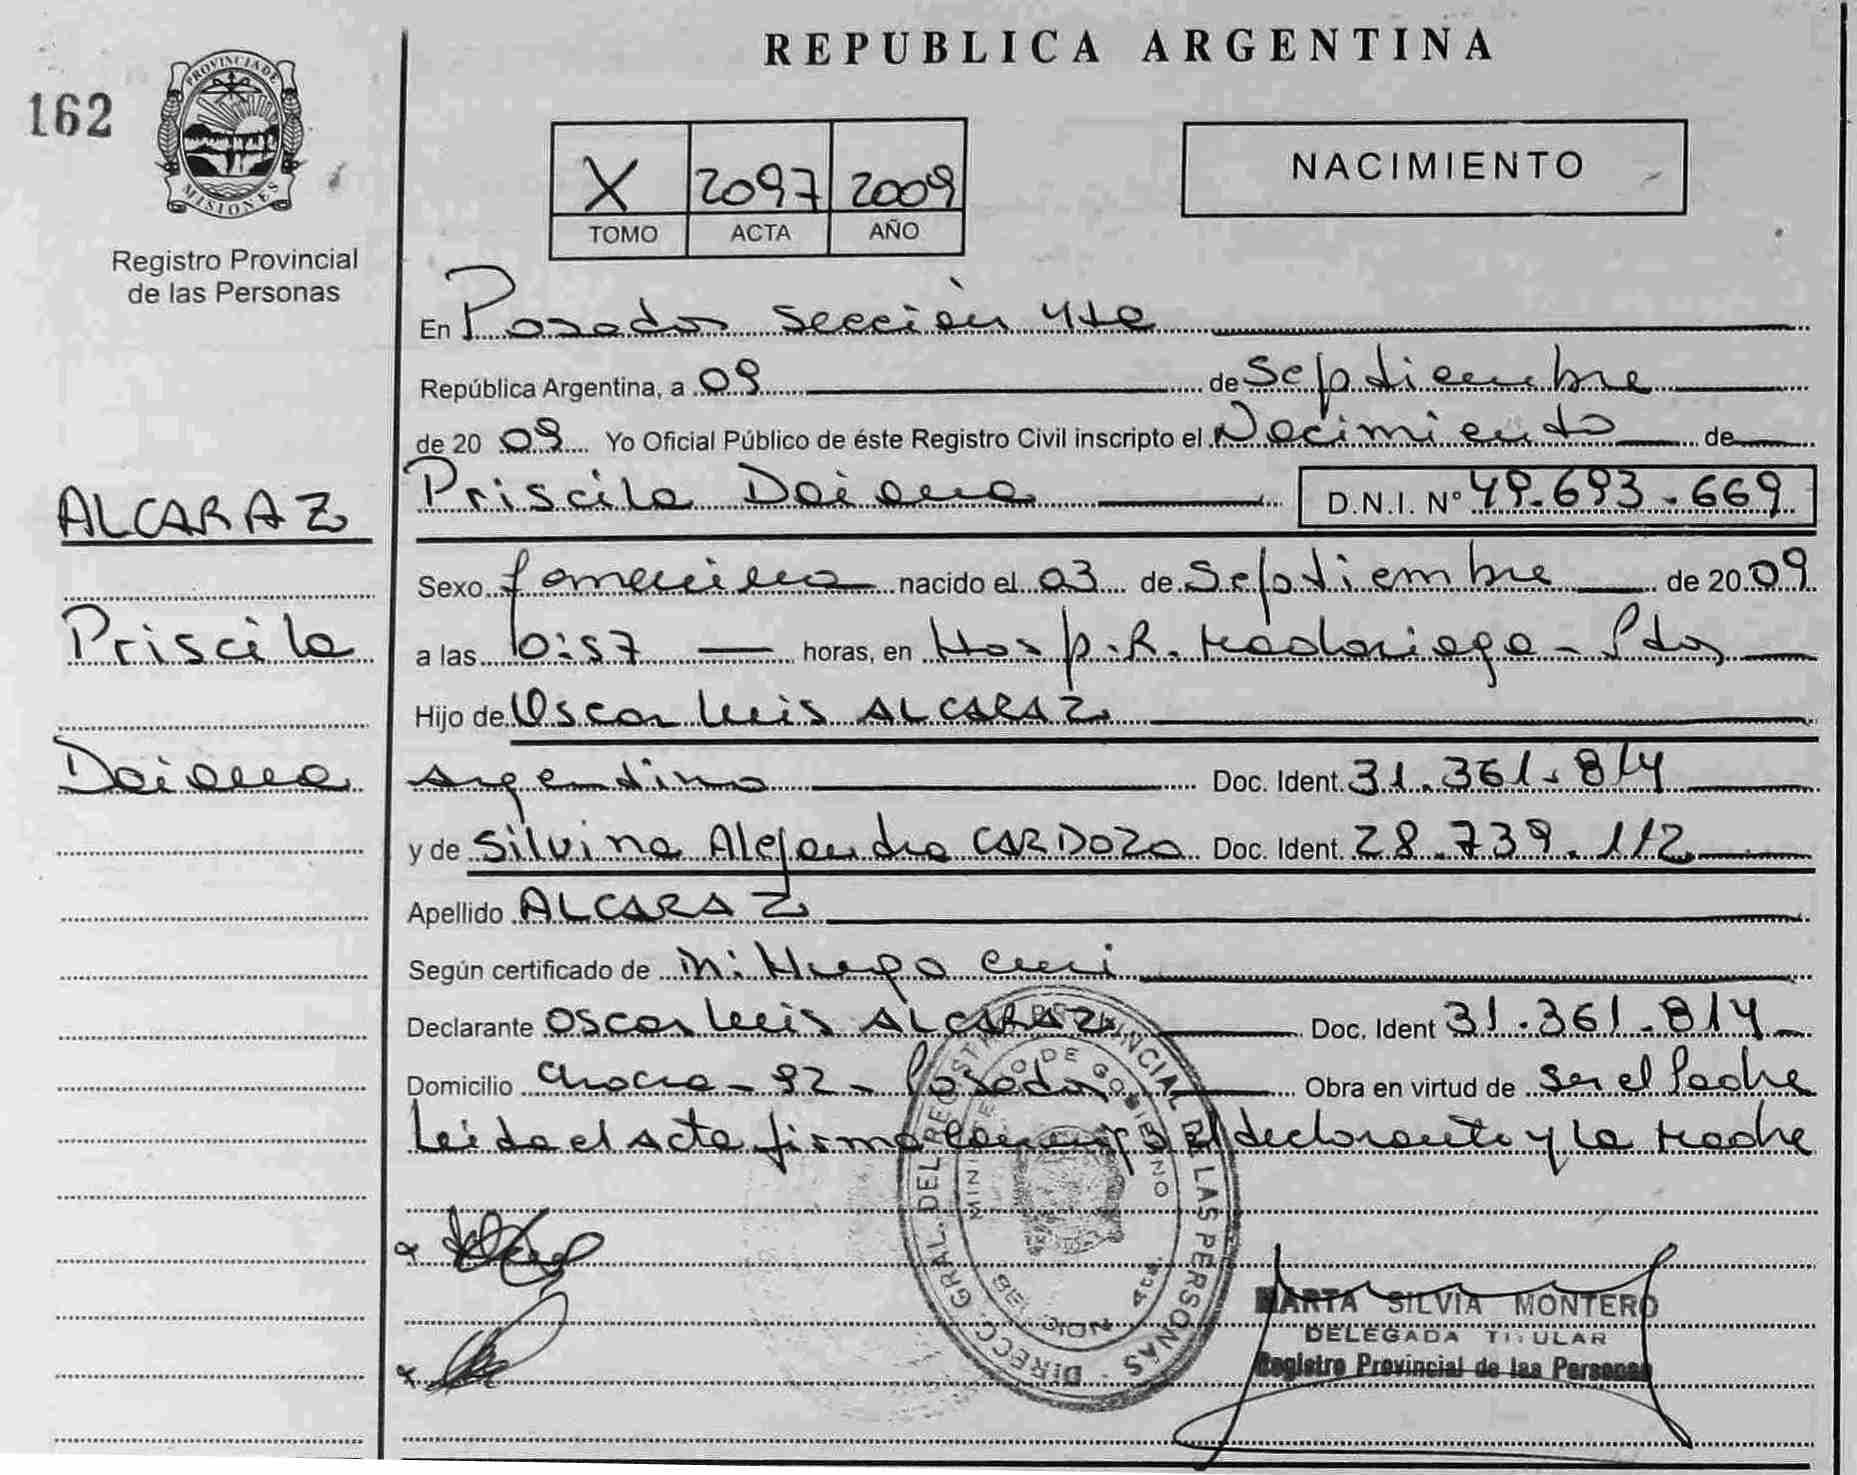 REPUBLICA ARGENTINA
162
PROVINCIA DE MISIONES
Registro Provincial
de las Personas
X 2097 2009
TOMO ACTA AÑO
NACIMIENTO
En Posadas Sección 4ta
República Argentina, a 09 de Septiembre
de 20 09 Yo Oficial Público de éste Registro Civil inscripto el Nacimiento de
Priscila Daiana D.N.I. Nº 49.693.669
ALCARAZ
Priscila
Daiana
Sexo femenino nacido el 03 de Septiembre de 2009
a las 0:57 horas, en Hosp. R. Madariaga - Pdas
Hijo de Oscar Luis ALCARAZ
Argentino Doc. Ident. 31.361.814
y de Silvina Alejandra CARDOZO Doc. Ident. 28.739.112
Apellido ALCARAZ
Según certificado de M: Hugo
Declarante Oscar Luis ALCARAZ Doc. Ident 31.361.814
Domicilio 92 - Posadas Obra en virtud de Ser el Padre
Leída el Acta firma conmigo el declarante y la Madre
DIRECC. GRAL. DEL REGISTRO PROVINCIAL DE LAS PERSONAS
MINISTERIO DE GOBIERNO
4ta.
MARTA SILVIA MONTERO
DELEGADA TITULAR
Registro Provincial de las Personas